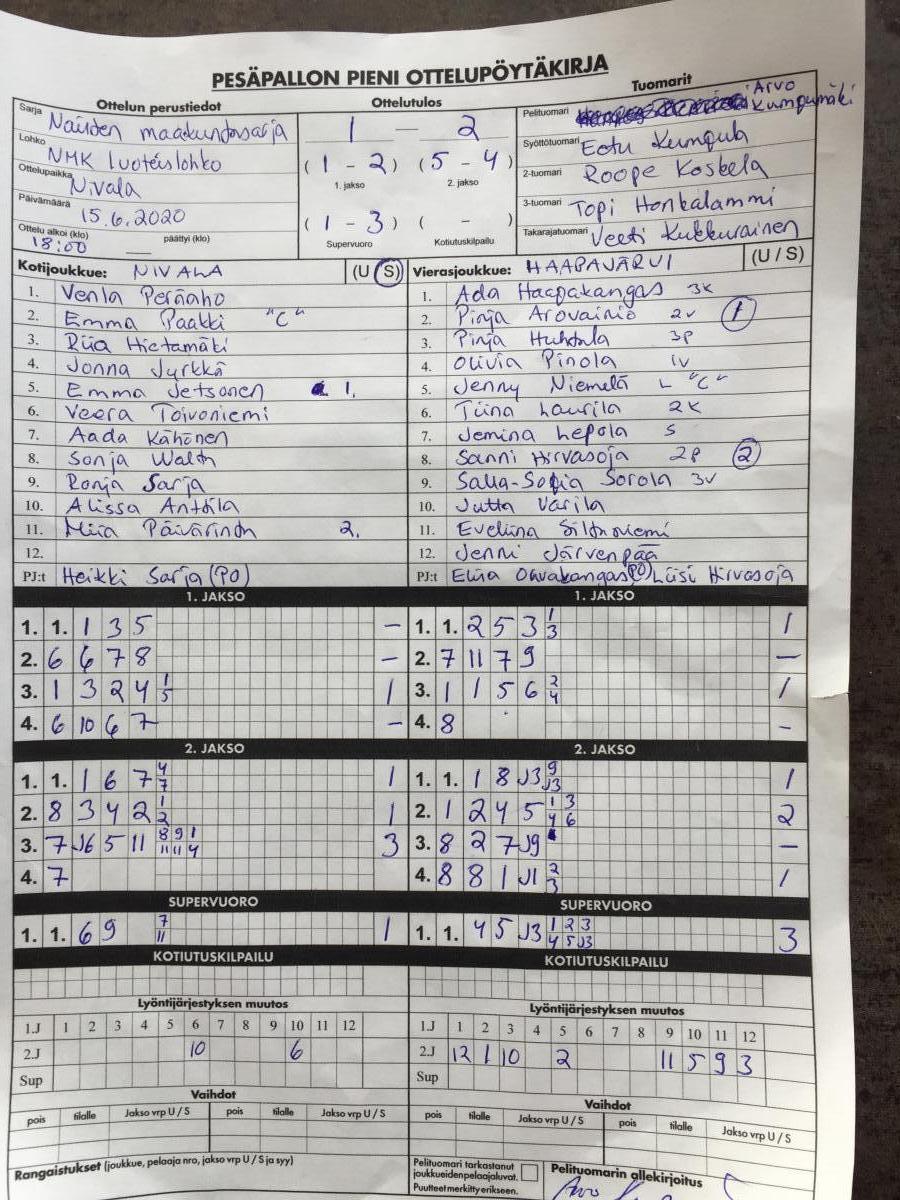 PESÄPALLON PIENI OTTELUPÖYTÄKIRJA
Ottelun perustiedot Ottelutulos Tuomarit
Sarja Naisten maakuntasarja
Lohko NMK luoteislohko
Ottelupaikka Nivala
Päivämäärä 15.6.2020
Ottelu alkoi (klo) 18:00 päättyi (klo)
1 – 2
(1 – 2) (5 – 4)
1. jakso 2. jakso
(1 – 3) ( – )
Supervuoro Kotiutuskilpailu
Pelituomari Arvo Kumpumäki
Syöttötuomari Eetu
2-tuomari Roope Koskela
3-tuomari Topi Honkalammi
Takarajatuomari Veeti Kukkurainen
Kotijoukkue: NIVALA (U / S)
1. Venla Peräaho
2. Emma Paakki "C"
3. Riia Hietamäki
4. Jonna Jyrkkä
5. Emma Jetsonen 1.
6. Veera Toivoniemi
7. Aada Kähönen
8. Sonja
9. Ronja Sarja
10. Alissa Anttila
11. Miia Päivärinta 2.
12.
PJ:t Heikki Sarja (PO)
Vierasjoukkue: HAAPAJÄRVI (U / S)
1. Ada Haapakangas 3K
2. Pinja Arovainio 2V 1
3. Pinja Huhtala 3P
4. Olivia Pinola 1V
5. Jenny Niemelä L "C"
6. Tiina Laurila 2K
7. Jemina Lepola S
8. Sanni Hirvasoja 2P 2
9. Salla-Sofia Sorola 3V
10. Jutta Varila
11. Eveliina Siltaniemi
12. Jenni Järvenpää
PJ:t Elisa Oravakangas (PO) Liisi Hirvasoja
1. JAKSO 1. JAKSO
1. 1. 1 3 5 – 1. 1. 2 5 3 1/3 1
2. 6 6 7 8 – 2. 7 11 7 9 –
3. 1 3 2 4 1/5 1 3. 1 1 5 6 2/4 1
4. 6 10 6 7 – 4. 8 –
2. JAKSO 2. JAKSO
1. 1. 1 6 7 4/7 1 1. 1. 1 8 J3 9/J3 1
2. 8 3 4 2 1/2 1 2. 1 2 4 5 1/4 3/6 2
3. 7 J6 5 11 8/11 9/11 1/4 3 3. 8 2 7 J9 –
4. 7 4. 8 8 1 J1 2/3 1
SUPERVUORO SUPERVUORO
1. 1. 6 9 7/11 1 1. 1. 4 5 J3 1/4 2/5 3/J3 3
KOTIUTUSKILPAILU KOTIUTUSKILPAILU
Lyöntijärjestyksen muutos Lyöntijärjestyksen muutos
1.J 1 2 3 4 5 6 7 8 9 10 11 12 1.J 1 2 3 4 5 6 7 8 9 10 11 12
2.J 10 6 2.J 12 1 10 2 11 5 9 3
Sup Sup
Vaihdot Vaihdot
pois tilalle Jakso vrp U / S pois tilalle Jakso vrp U / S pois tilalle Jakso vrp U / S pois tilalle Jakso vrp U / S
Rangaistukset (joukkue, pelaaja nro, jakso vrp U / S ja syy)
Pelituomari tarkastanut joukkueiden pelaajaluvat.
Puutteet merkitty erikseen.
Pelituomarin allekirjoitus